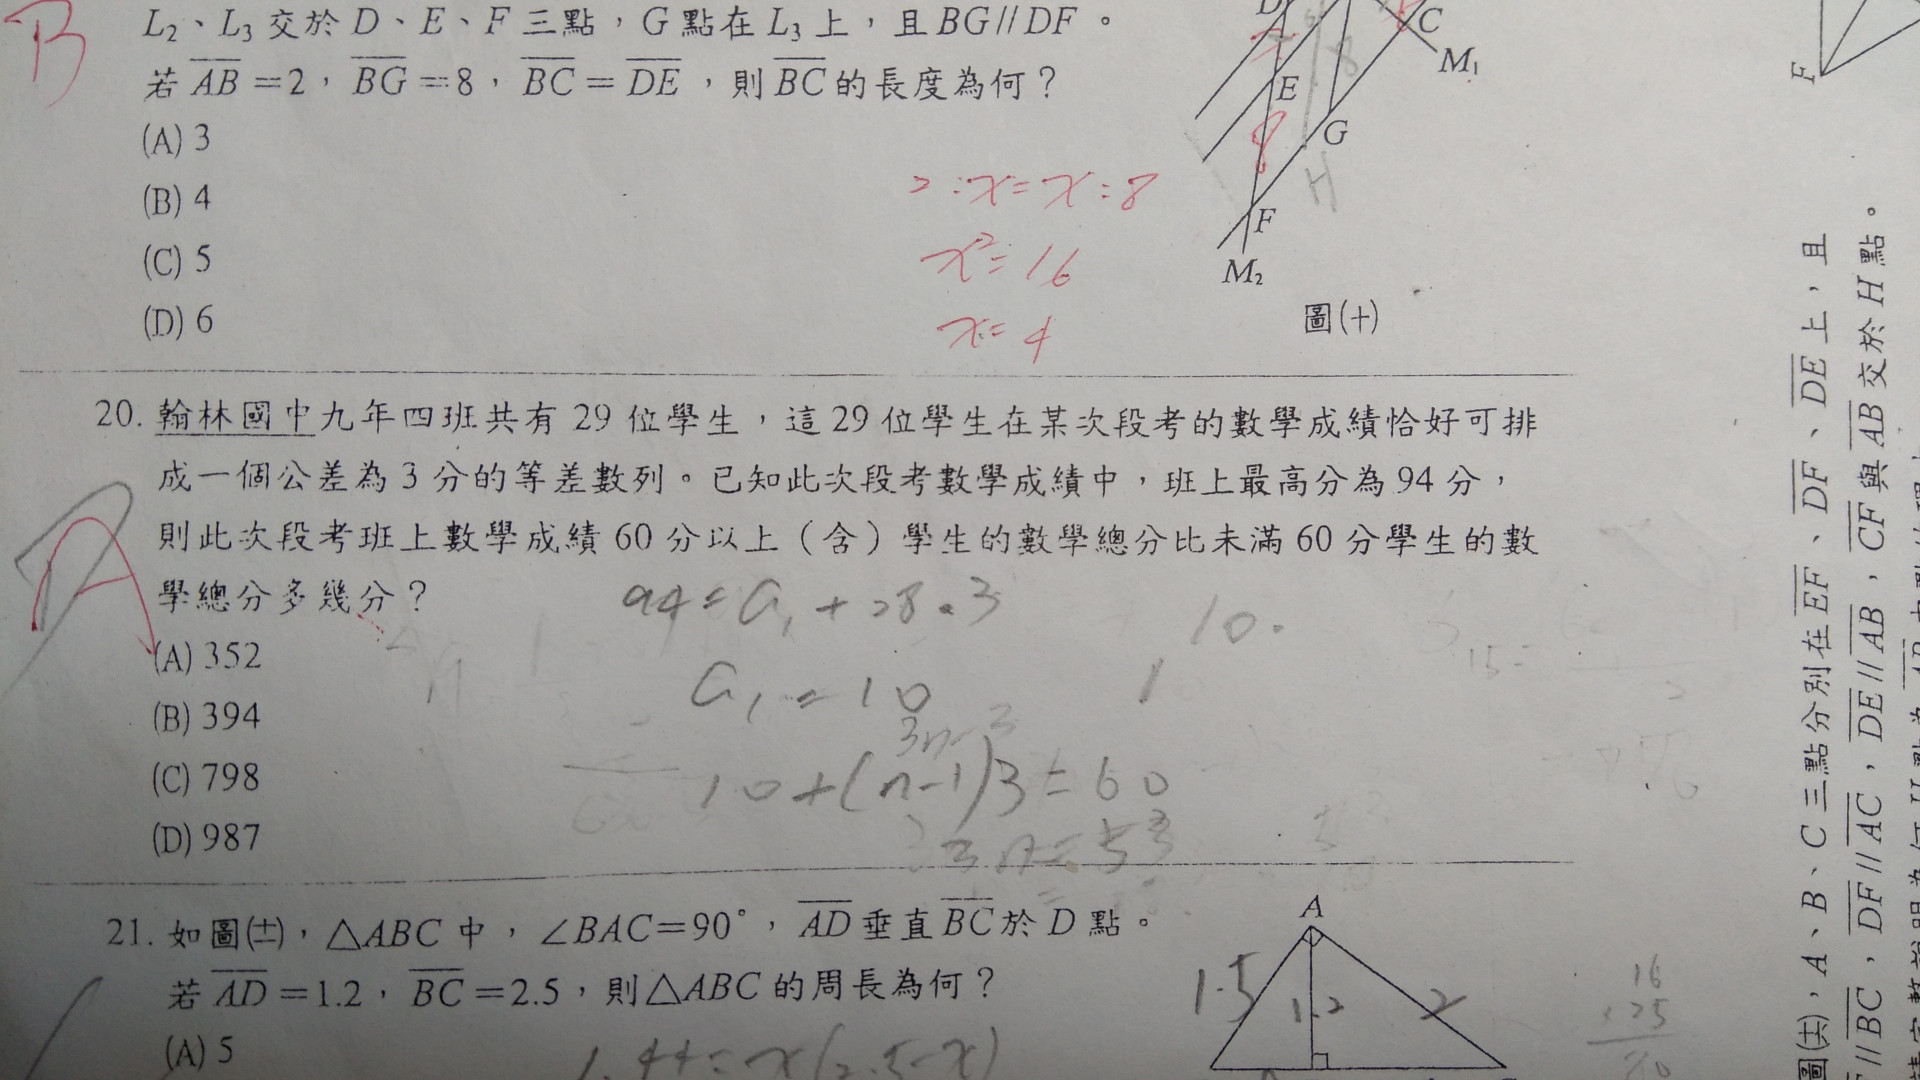 B
L₂、L₃ 交於 D、E、F 三點，G 點在 L₃ 上，且 BG // DF。
若 AB = 2，BG = 8，BC = DE，則 BC 的長度為何？
(A) 3
(B) 4
(C) 5
(D) 6
2 : x = x : 8
x² = 16
x = 4
D
C
M₁
8
E
G
8
H
F
M₂
圖(十)
F
A
20. 翰林國中九年四班共有 29 位學生，這 29 位學生在某次段考的數學成績恰好可排
成一個公差為 3 分的等差數列。已知此次段考數學成績中，班上最高分為 94 分，
則此次段考班上數學成績 60 分以上（含）學生的數學總分比未滿 60 分學生的數
學總分多幾分？
94 = a₁ + 28 · 3
10.
(A) 352
a₁ = 10
(B) 394
3n-3
(C) 798
10 + (n-1)3 = 60
(D) 987
3n = 53
21. 如圖(士)，△ABC 中，∠BAC = 90°，AD 垂直 BC 於 D 點。
若 AD = 1.2，BC = 2.5，則△ABC 的周長為何？
(A) 5
1.44 = x(2.5-x)
A
1.5
1.2
2
16
× 25
圖(共)，A、B、C 三點分別在 EF、DF、DE 上，且
// BC，DF // AC，DE // AB，CF 與 AB 交於 H 點。